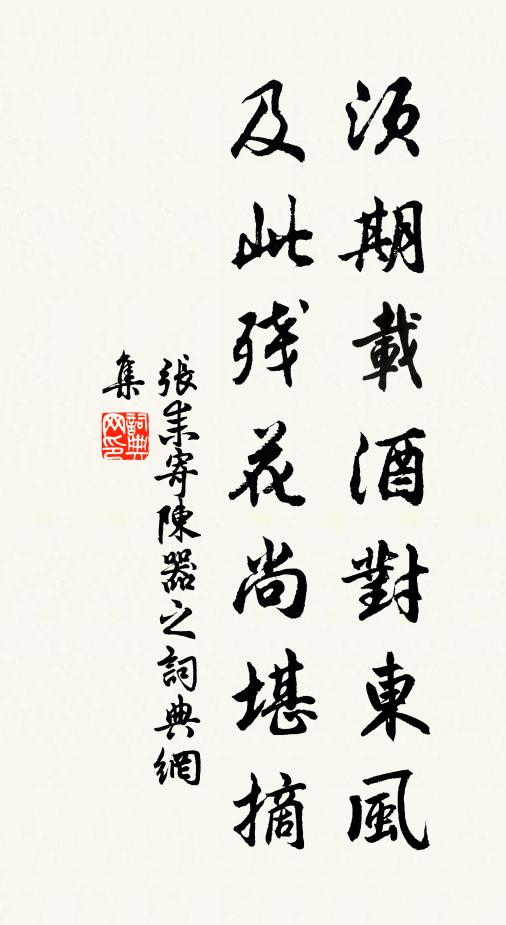 須期載酒對東風
及此残花尚堪摘
張耒寄陳器之詞典網
集
詞典
网印